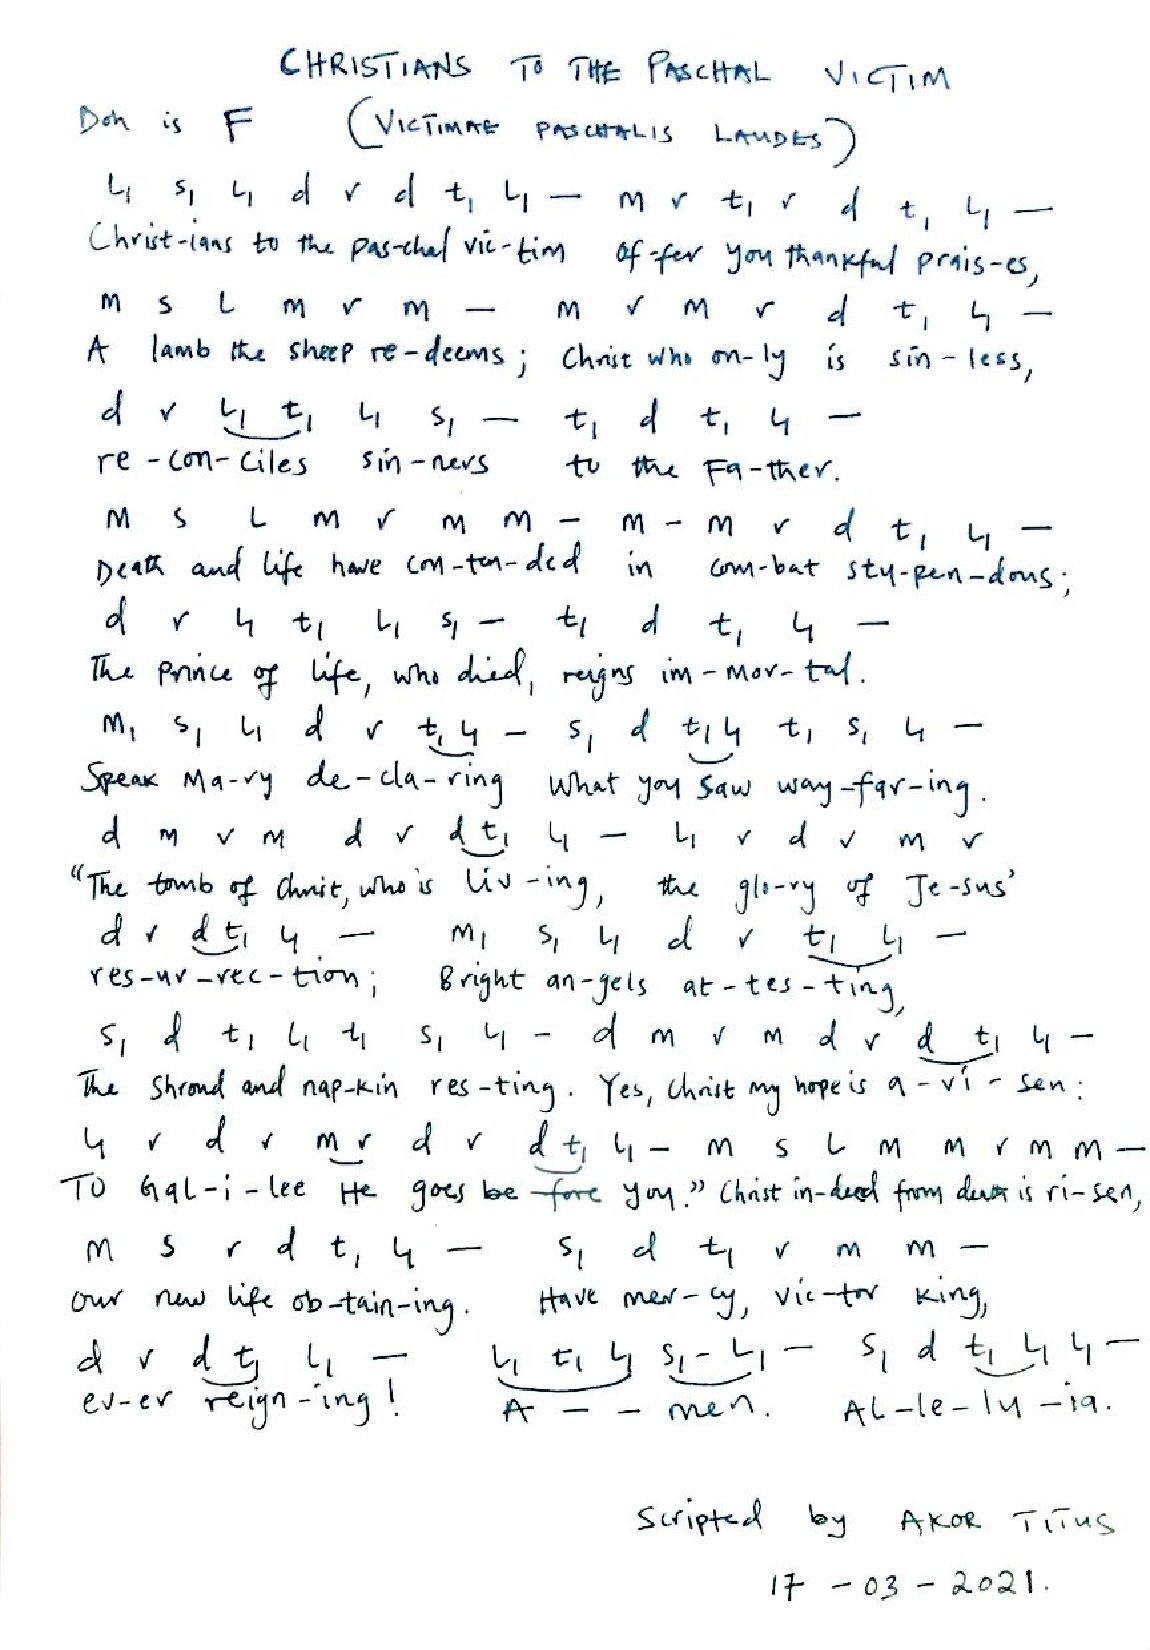 CHRISTIANS TO THE PASCHAL VICTIM
Doh is F (VICTIMAE PASCHALIS LAUDES)
l₁ s₁ l₁ d r d t₁ l₁ — m r t₁ r d t₁ l₁ —
Christ-ians to the pas-chal vic-tim of-fer you thankful prais-es,
m s l m r m — m r m r d t₁ l₁ —
A lamb the sheep re-deems; Christ who on-ly is sin-less,
d r l₁ t₁ l₁ s₁ — t₁ d t₁ l₁ —
re-con-ciles sin-ners to the Fa-ther.
m s l m r m m — m - m r d t₁ l₁ —
Death and life have con-ten-ded in com-bat stu-pen-dous;
d r l₁ t₁ l₁ s₁ — t₁ d t₁ l₁ —
The prince of life, who died, reigns im-mor-tal.
m₁ s₁ l₁ d r t₁ l₁ — s₁ d t₁ l₁ t₁ s₁ l₁ —
Speak Ma-ry de-cla-ring what you saw way-far-ing.
d m r m d r d t₁ l₁ — l₁ r d r m r
"The tomb of Christ, who is liv-ing, the glo-ry of Je-sus'
d r d t₁ l₁ — m₁ s₁ l₁ d r t₁ l₁ —
res-ur-rec-tion; Bright an-gels at-tes-ting,
s₁ d t₁ l₁ t₁ s₁ l₁ - d m r m d r d t₁ l₁ —
The shroud and nap-kin res-ting. Yes, Christ my hope is a-ri-sen:
l₁ r d r m r d r d t₁ l₁ — m s l m m r m m —
To Gal-i-lee He goes be-fore you." Christ in-deed from death is ri-sen,
m s r d t₁ l₁ — s₁ d t₁ r m m —
our new life ob-tain-ing. Have mer-cy, vic-tor king,
d r d t₁ l₁ — l₁ t₁ l₁ s₁ - l₁ — s₁ d t₁ l₁ l₁ —
ev-er reign-ing! A - - men. Al-le-lu-ia.
Scripted by AKOR TITUS
17-03-2021.